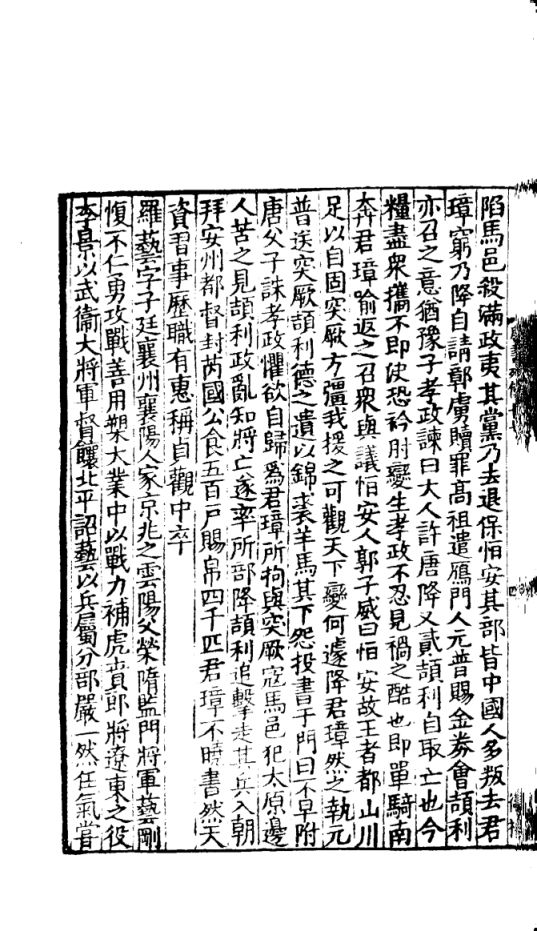 陷馬邑殺滿政夷其黨乃去退保恒安其部皆中國人多叛去君
璋窮乃降自請鄣虜贖罪高祖遣鴈門人元普賜金券會頡利
亦召之意猶豫子孝政諫曰大人許唐降又貳頡利自取亡也今
糧盡衆攜不即使恐衿肘變生孝政不忍見禍之酷也即單騎南
奔君璋喻返之召衆與議恒安人郭子威曰恒安故王者都山川
足以自固突厥方彊我援之可觀天下變何遽降君璋然之執元
普送突厥頡利德之遺以錦裘羊馬其下怨投書于門曰不早附
唐父子誅孝政懼欲自歸爲君璋所拘與突厥寇馬邑犯太原邊
人苦之見頡利政亂知將亡遂率所部降頡利追擊走其兵入朝
拜安州都督封芮國公食五百戶賜帛四千匹君璋不曉書然天
資習事歷職有惠稱貞觀中卒
羅藝字子廷襄州襄陽人家京兆之雲陽父榮隋監門將軍藝剛
愎不仁勇攻戰善用槊大業中以戰力補虎賁郎將遼東之役
李景以武衞大將軍督饟北平詔藝以兵屬分部嚴一然任氣嘗